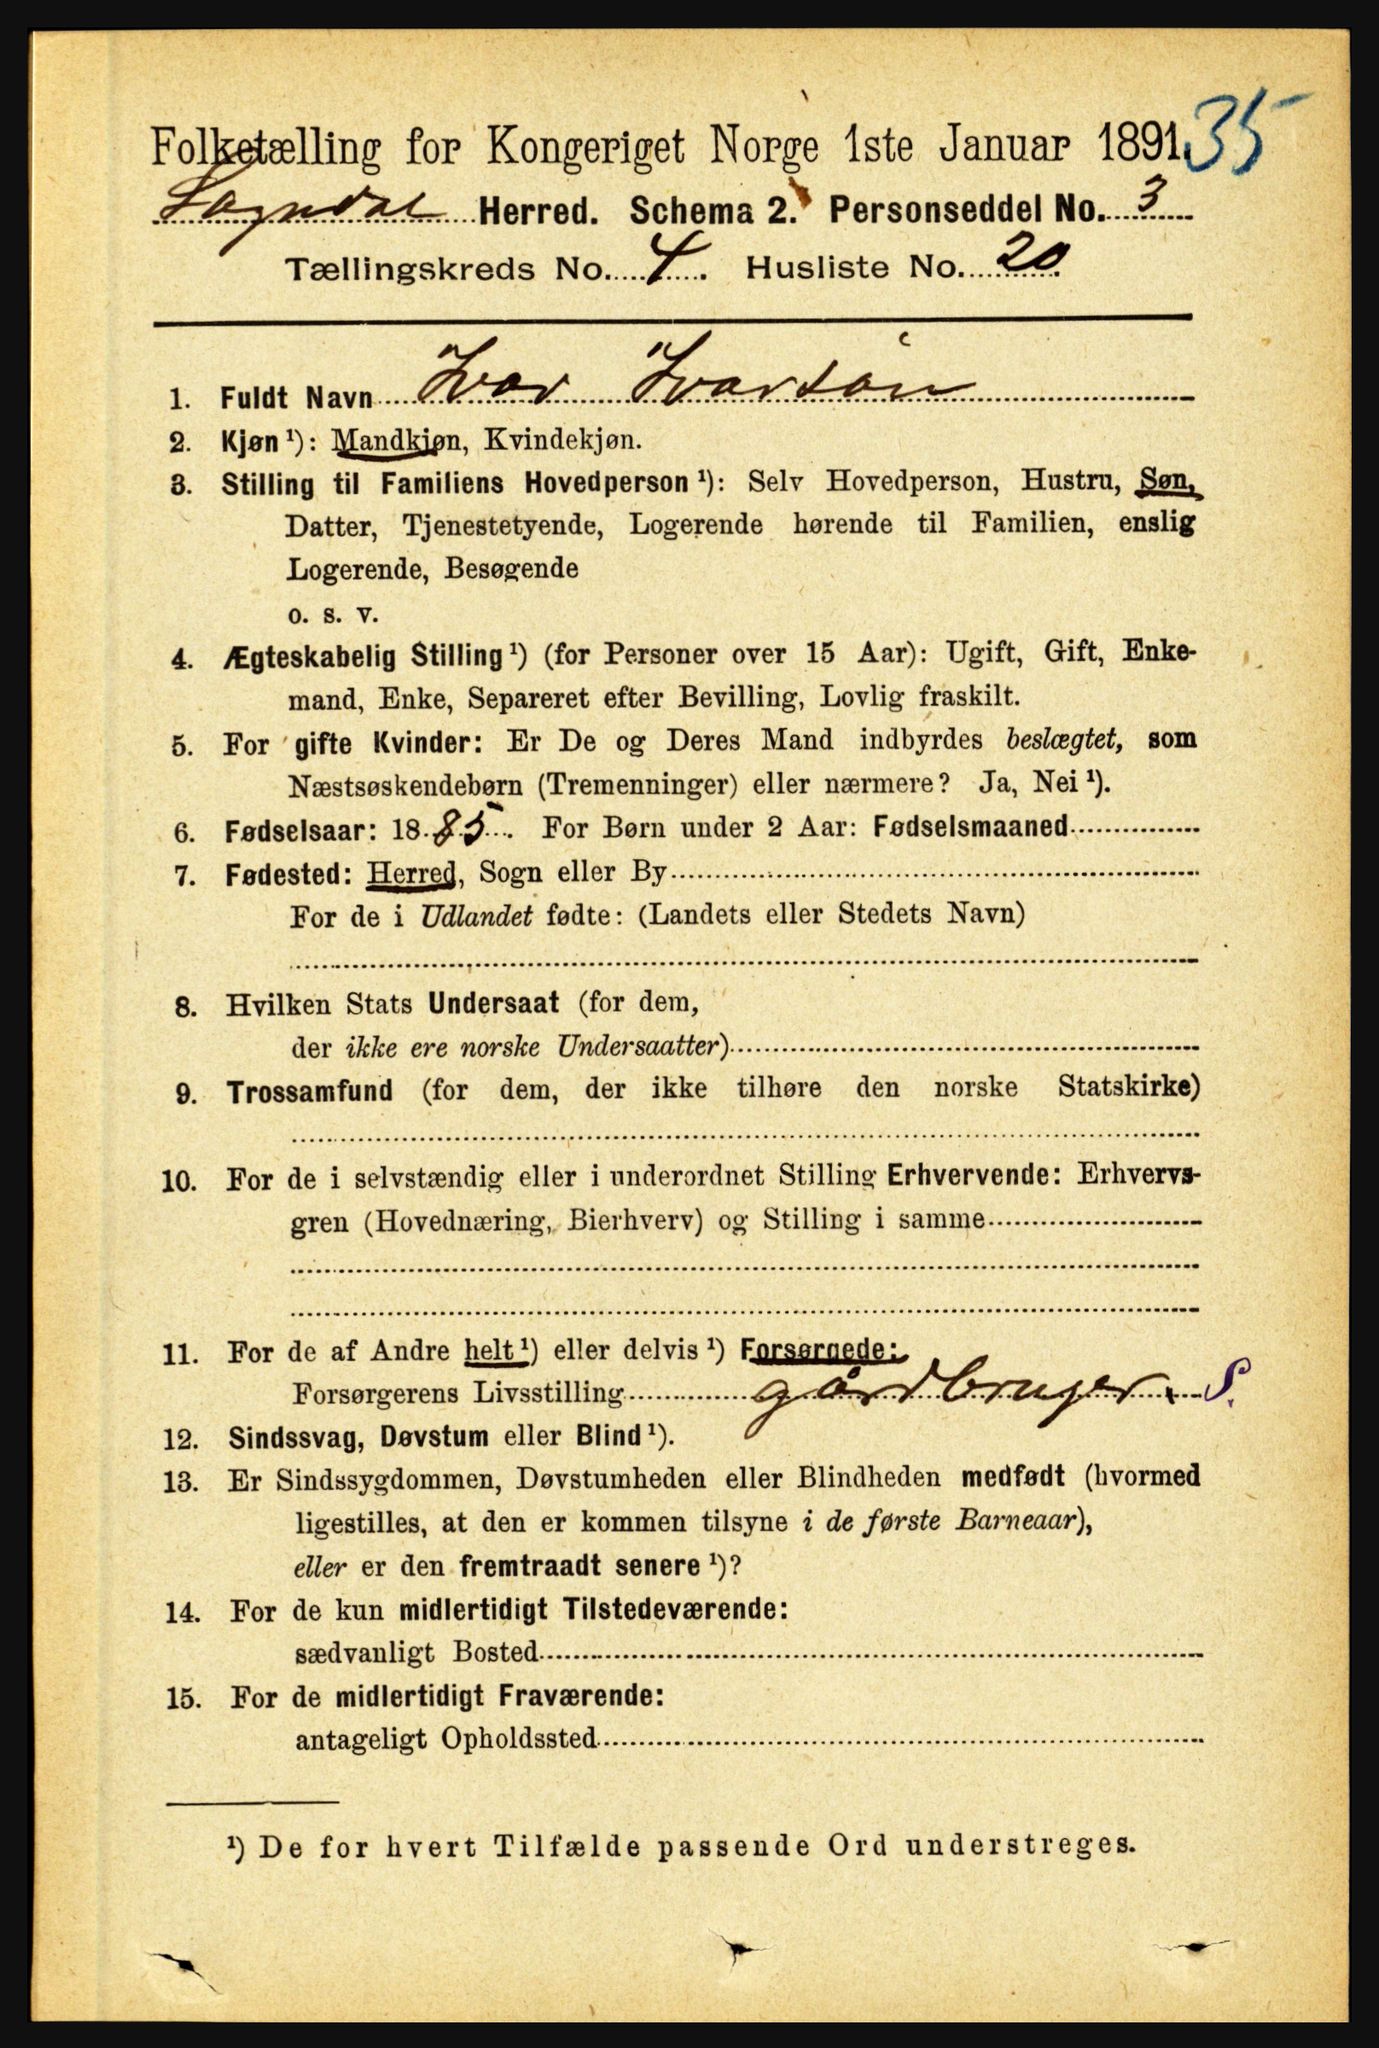 Folketælling for Kongeriget Norge 1ste Januar 1891. 35
Sogndal Herred. Schema 2. Personseddel No. 3
Tællingskreds No. 4. Husliste No. 20
1. Fuldt Navn Ivar Ivarsøn
2. Kjøn ¹): Mandkjøn, Kvindekjøn.
3. Stilling til Familiens Hovedperson ¹): Selv Hovedperson, Hustru, Søn,
Datter, Tjenestetyende, Logerende hørende til Familien, enslig
Logerende, Besøgende
o. s. v.
4. Ægteskabelig Stilling ¹) (for Personer over 15 Aar): Ugift, Gift, Enke-
mand, Enke, Separeret efter Bevilling, Lovlig fraskilt.
5. For gifte Kvinder: Er De og Deres Mand indbyrdes beslægtet, som
Næstsøskendebørn (Tremenninger) eller nærmere? Ja, Nei ¹).
6. Fødselsaar: 1885. For Børn under 2 Aar: Fødselsmaaned
7. Fødested: Herred, Sogn eller By
For de i Udlandet fødte: (Landets eller Stedets Navn)
8. Hvilken Stats Undersaat (for dem,
der ikke ere norske Undersaatter)
9. Trossamfund (for dem, der ikke tilhøre den norske Statskirke)
10. For de i selvstændig eller i underordnet Stilling Erhvervende: Erhvervs-
gren (Hovednæring, Bierhverv) og Stilling i samme
11. For de af Andre helt ¹) eller delvis ¹) Forsørgede:
Forsørgerens Livsstilling gårdbruger. S.
12. Sindssvag, Døvstum eller Blind ¹).
13. Er Sindssygdommen, Døvstumheden eller Blindheden medfødt (hvormed
ligestilles, at den er kommen tilsyne i de første Barneaar),
eller er den fremtraadt senere ¹)?
14. For de kun midlertidigt Tilstedeværende:
sædvanligt Bosted
15. For de midlertidigt Fraværende:
antageligt Opholdssted
¹) De for hvert Tilfælde passende Ord understreges.